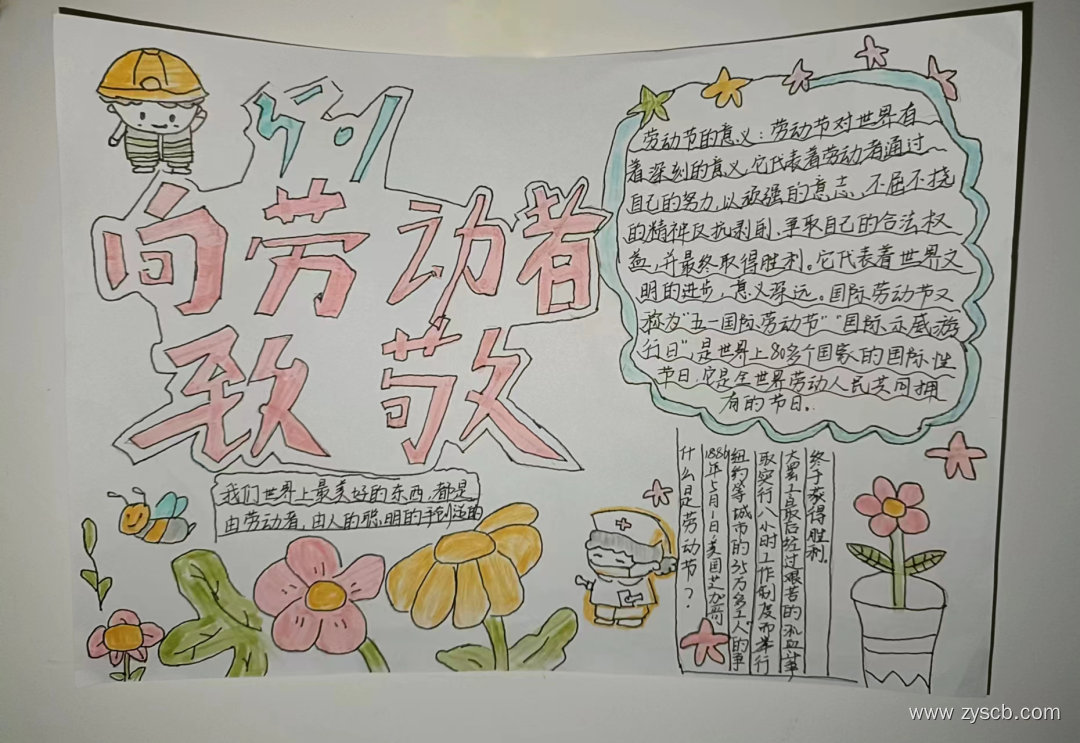 5.1
向劳动者
致敬
劳动节的意义：劳动节对世界有
着深刻的意义，它代表着劳动者通过
自己的努力，以顽强的意志、不屈不挠
的精神反抗剥削、争取自己的合法权
益，并最终取得胜利。它代表着世界文
明的进步，意义深远。国际劳动节又
称为"五一国际劳动节""国际示威游
行日"，是世界上80多个国家的国际性
节日，它是全世界劳动人民共同拥
有的节日。
我们世界上最美好的东西，都是
由劳动者，由人的聪明的手创造的
什么是劳动节？
1886年5月1日美国芝加哥
纽约等城市的35万多工人"的事
取实行八小时工作制度而举行
大罢工最后经过艰苦的流血斗争
终于获得胜利。
www.zyscb.com